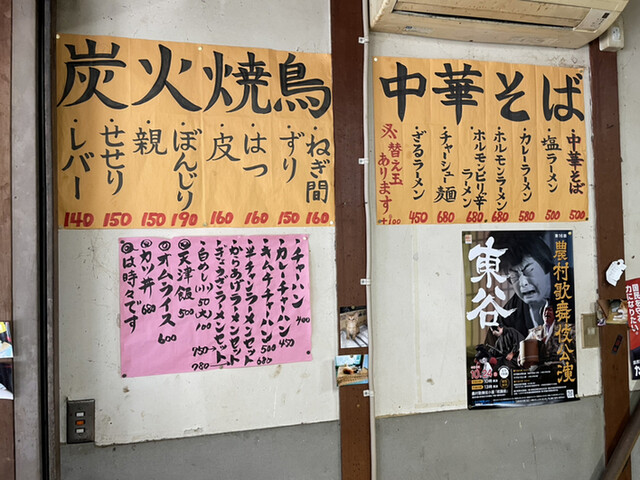 炭火焼鳥
・ねぎ間 160
・ずり 150
・はつ 160
・皮 160
・ぼんじり 190
・親 150
・せせり 150
・レバー 140
中華そば
・中華そば 500
・塩ラーメン 500
・カレーラーメン 580
・ホルモンラーメン 680
・ホルモンピリ辛ラーメン 680
・チャーシュー麺 680
・ざるラーメン 450
替え玉あります +100
・チャーハン 400
・カレーチャーハン 450
・キムチチャーハン 500
・半チャンラーメンセット 680
・からあげラーメンセット 750
・ぎょうざラーメンセット 780
・白めし 小50 大100
天津飯 500
オムライス 600
カツ丼 680
は時々です
農村歌舞伎公演
東谷